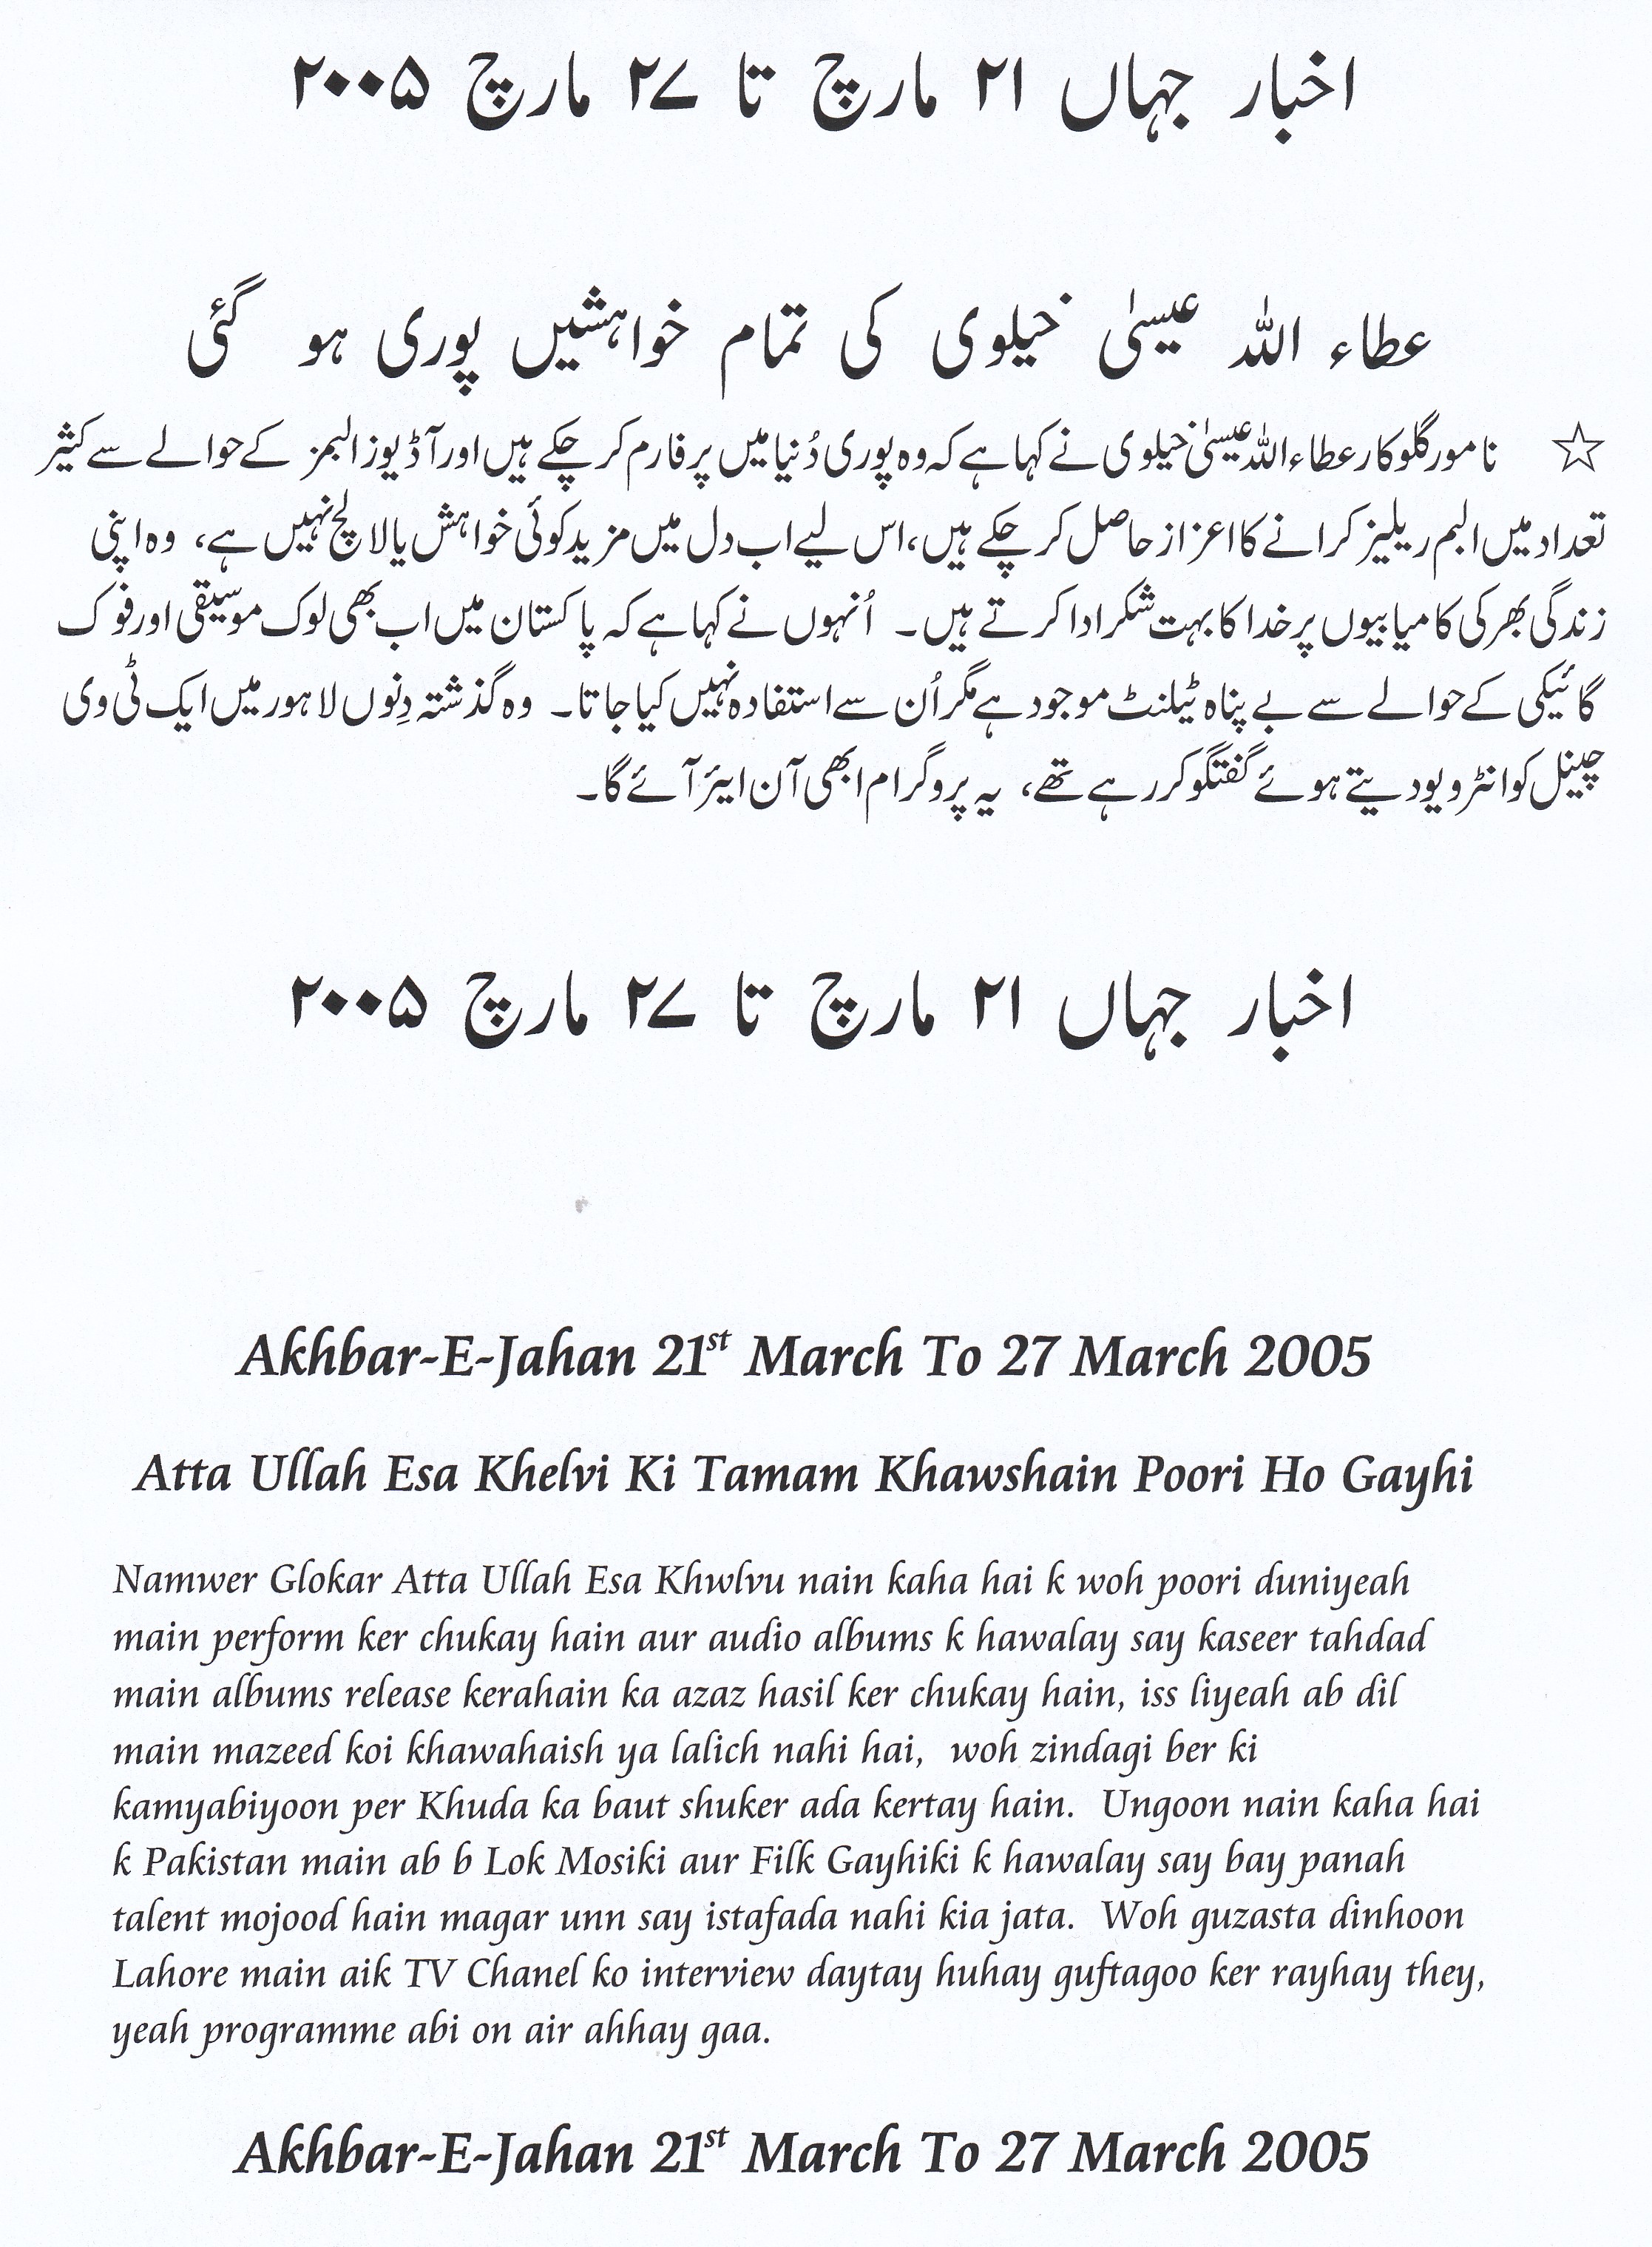 اخبار جہاں ۲۱ مارچ تا ۲۷ مارچ ۲۰۰۵
عطاء اللہ عیسیٰ خیلوی کی تمام خواہشیں پوری ہو گئی
☆ نامور گلوکار عطاء اللہ عیسیٰ خیلوی نے کہا ہے کہ وہ پوری دُنیا میں پرفارم کر چکے ہیں اور آڈیوز البمز کے حوالے سے کثیر
تعداد میں البم ریلیز کرانے کا اعزاز حاصل کر چکے ہیں، اس لیے اب دل میں مزید کوئی خواہش یا لالچ نہیں ہے، وہ اپنی
زندگی بھر کی کامیابیوں پر خدا کا بہت شکر ادا کرتے ہیں۔ اُنہوں نے کہا ہے کہ پاکستان میں اب بھی لوک موسیقی اور فوک
گائیکی کے حوالے سے بے پناہ ٹیلنٹ موجود ہے مگر اُن سے استفادہ نہیں کیا جاتا۔ وہ گذشتہ دِنوں لاہور میں ایک ٹی وی
چینل کو انٹرویو دیتے ہوئے گفتگو کر رہے تھے، یہ پروگرام ابھی آن ایئر آئے گا۔
اخبار جہاں ۲۱ مارچ تا ۲۷ مارچ ۲۰۰۵
Akhbar-E-Jahan 21st March To 27 March 2005
Atta Ullah Esa Khelvi Ki Tamam Khawshain Poori Ho Gayhi
Namwer Glokar Atta Ullah Esa Khwlvu nain kaha hai k woh poori duniyeah
main perform ker chukay hain aur audio albums k hawalay say kaseer tahdad
main albums release kerahain ka azaz hasil ker chukay hain, iss liyeah ab dil
main mazeed koi khawahaish ya lalich nahi hai, woh zindagi ber ki
kamyabiyoon per Khuda ka baut shuker ada kertay hain. Ungoon nain kaha hai
k Pakistan main ab b Lok Mosiki aur Filk Gayhiki k hawalay say bay panah
talent mojood hain magar unn say istafada nahi kia jata. Woh guzasta dinhoon
Lahore main aik TV Chanel ko interview daytay huhay guftagoo ker rayhay they,
yeah programme abi on air ahhay gaa.
Akhbar-E-Jahan 21st March To 27 March 2005